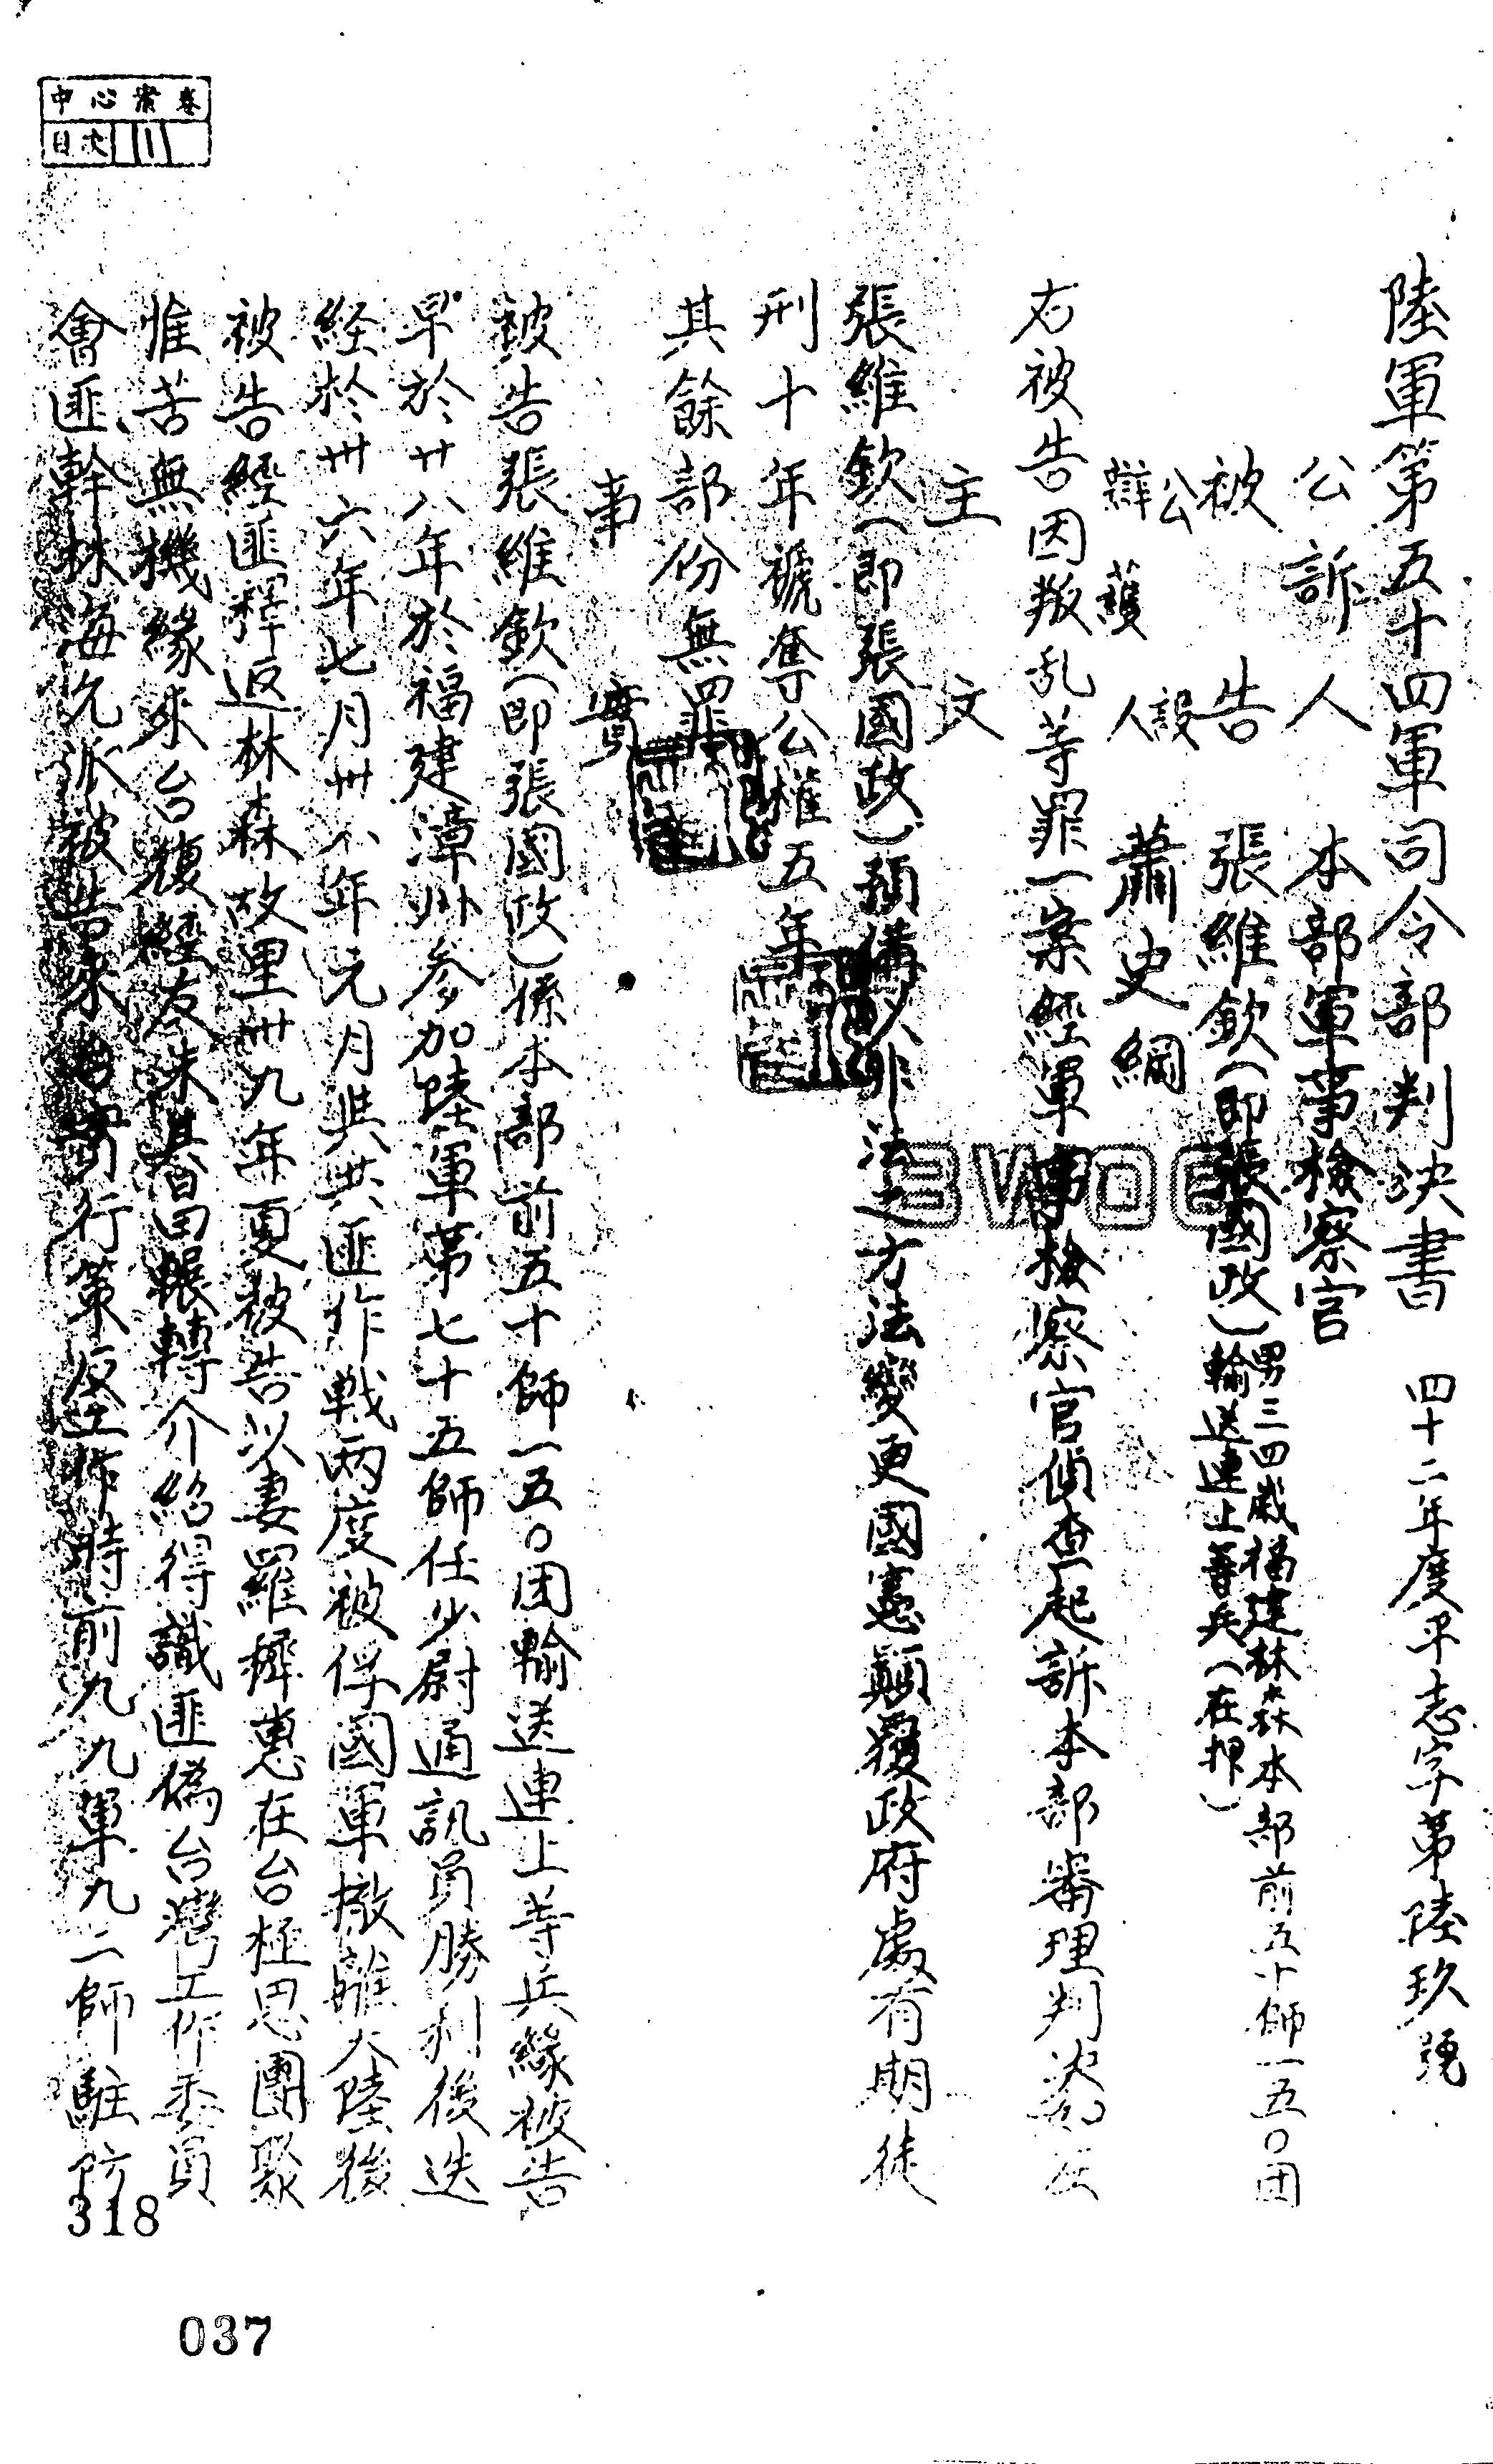 中心案卷
目次
陸軍第五十四軍司令部判決書 四十二年度平志字第陸玖號
公訴人 本部軍事檢察官
被告 張維欽(即張國政)男三四歲福建林森本部前五十師一五〇团
輸送連上等兵(在押)
公設
辯護人 蕭史綱
右被告因叛乱等罪一案經軍事檢察官偵查起訴本部審理判決如左
主文
張維欽(即張國政)預備以非法之方法變更國憲顛覆政府處有期徒
刑十年褫奪公權五年
其餘部份無罪
事實
被告張維欽(即張國政)係本部前五十師一五〇团輸送連上等兵緣被告
早於廿八年於福建漳州参加陸軍第七十五師任少尉通訊員勝利後迭
経於卅六年七月卅八年元月與共匪作戰两度被俘國軍撤離大陸後
被告經匪釋返林森故里卅九年夏被告以妻羅擠蕙在台極思團聚
惟苦無機緣來台嗣經友朱某回輾轉介紹得識匪偽台灣工作委員
會匪幹林海允派被告來台實行策反工作時前九九軍九二師駐防
318
037